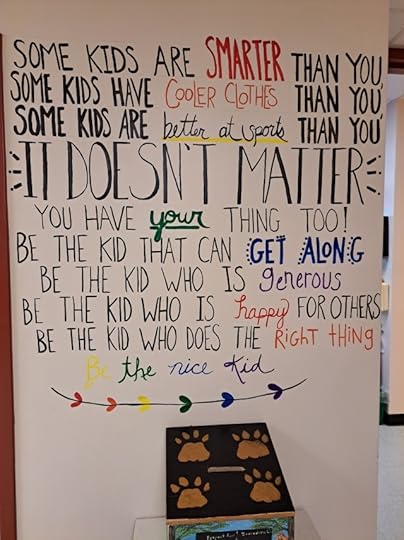 SOME KIDS ARE SMARTER THAN YOU,
SOME KIDS HAVE COOLER CLOTHES THAN YOU,
SOME KIDS ARE better at sports THAN YOU
IT DOESN'T MATTER
YOU HAVE your THING TOO!
BE THE KID THAT CAN GET ALONG
BE THE KID WHO IS generous
BE THE KID WHO IS happy FOR OTHERS
BE THE KID WHO DOES THE RigHT tHiNg
Be the nice Kid